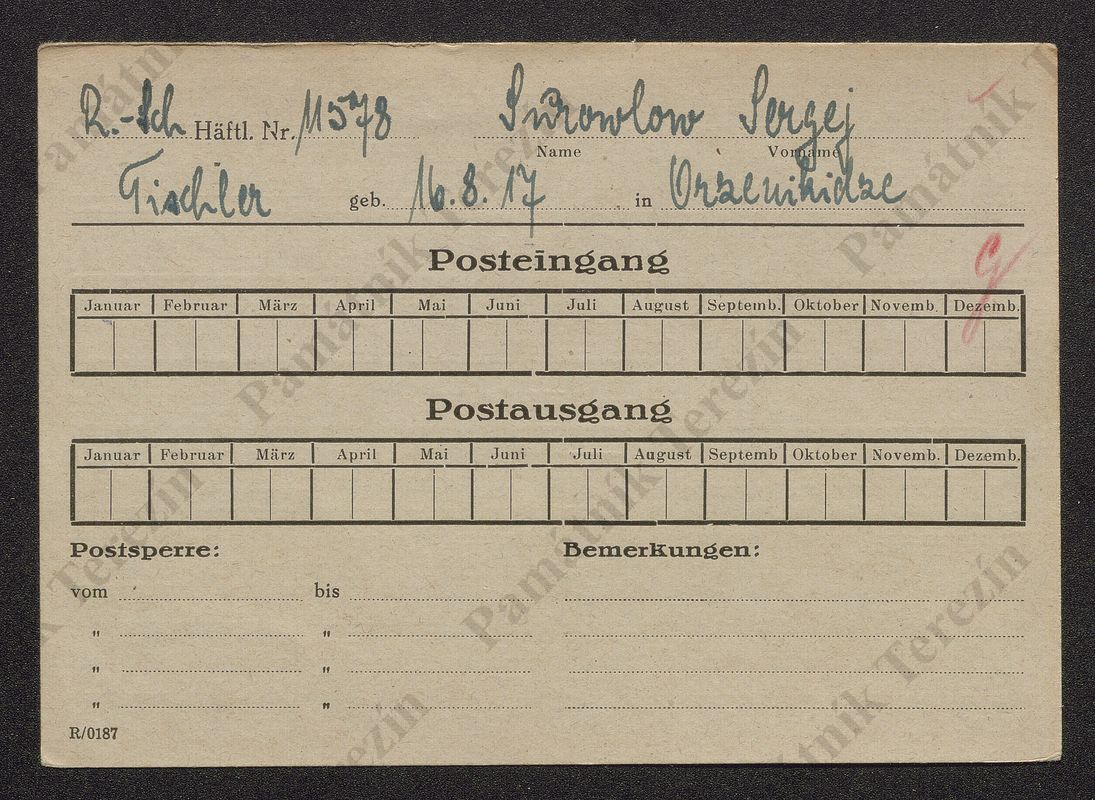 R.-Sch Häftl. Nr. 11578 Surowlow Sergej
Name Vorname
Tischler geb. 16.8.17 in Orzenikidze
Posteingang
Januar Februar März April Mai Juni Juli August Septemb. Oktober Novemb. Dezemb.
Postausgang
Januar Februar März April Mai Juni Juli August Septemb Oktober Novemb. Dezemb.
Postsperre: Bemerkungen:
vom bis
" "
" "
" "
R/0187
Památník Terezín